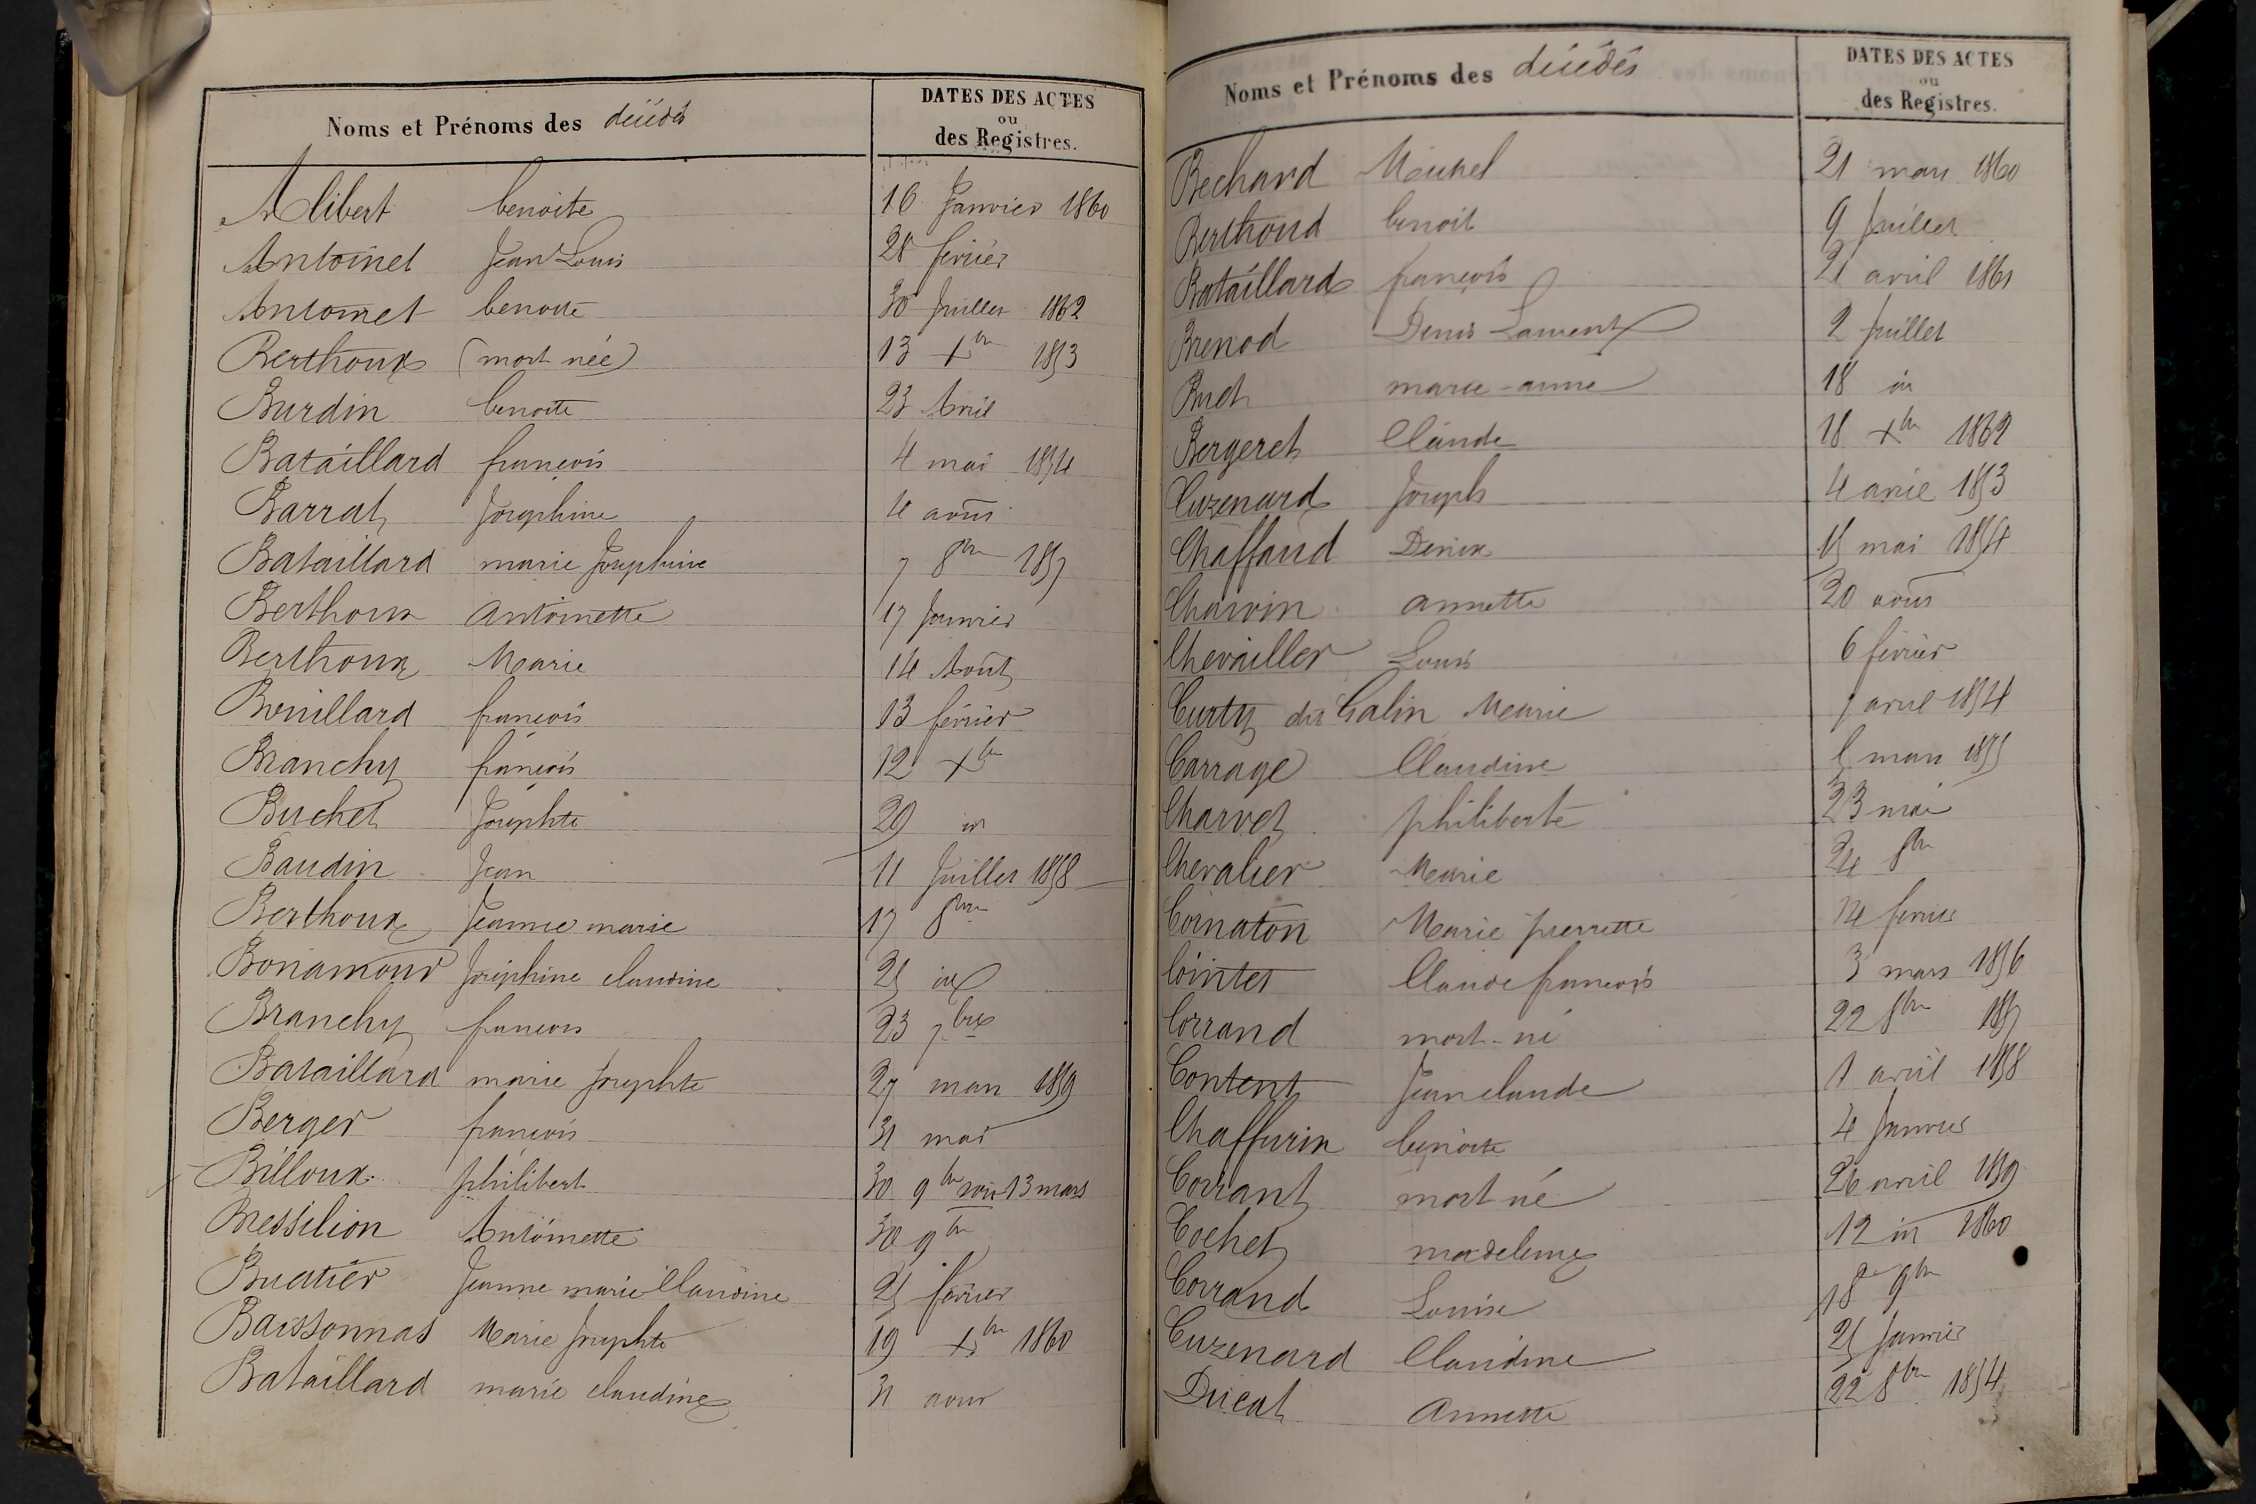 Noms et Prénoms des décédés
DATES DES ACTES
ou
des Registres.
Alibert benoite 16 Janvier 1860
Antoinet Jean Louis 28 février
Antoinet benoite 30 Juillet 1862
Berthoux (mort née) 13 Xbre 1853
Burdin benoite 23 Avril
Bataillard françois 4 mai 1854
Barrat Joséphine 4 août
Bataillard marie Joséphine 7 8bre 1857
Berthoux antoinette 17 Janvier
Berthoux Marie 14 Août
Brouillard françois 13 février
Branchy françois 12 Xbre
Buchet Josephte 29 id
Baudin Jean 11 Juillet 1858
Berthoux Jeanne marie 17 8bre
Bonamour Joséphine claudine 25 id
Branchy françois 23 7bre
Bataillard marie Josephte 27 mars 1859
Berger françois 31 mai
Billoux philibert 30 9bre 13 mars
Messilion Antoinette 30 9bre
Buatier Jeanne marie Claudine 25 février
Baissonnas Marie Josephte 19 Xbre 1860
Bataillard marie claudine 31 aout
Noms et Prénoms des décédés
DATES DES ACTES
ou
des Registres.
Bechard Michel 21 mars 1860
Berthoud benoit 9 Juillet
Bataillard françois 21 avril 1861
Brenod Denis Laurent 2 Juillet
marie-anne 18 id
Bergeret Claude 18 Xbre 1862
Cuzenard Joseph 4 avril 1853
Chaffaud Denise 15 mai 1854
Charvin annette 20 août
Chevailler Louis 6 février
Curty dit Galin Marie avril 1854
Carrage Claudine 5 mars 1855
Charvet philiberte 23 mai
Chevalier Marie 24 8bre
Coinaton Marie pierrette 14 fevrier
Cointet Claude françois 3 mars 1856
Corrand mort-né 22 8bre 1857
Content Jean claude 1 avril 1858
Chaffurin benoite 4 Janvier
Corrant mort né 26 avril 1859
Cochet madeleine 12 id 1860
Corrand Louise 18 9bre
Cuzenard Claudine 25 Janvier
Ducat Annette 22 8bre 1854